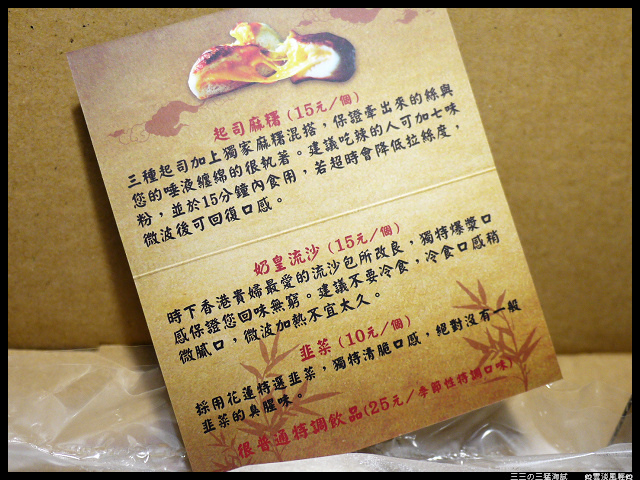 起司麻糬(15元/個)
三種起司加上獨家麻糬混搭，保證牽出來的絲與
您的唾液纏綿的很執著。建議吃辣的人可加七味
粉，並於15分鐘內食用，若超時會降低拉絲度，
微波後可回復口感。
奶皇流沙(15元/個)
時下香港貴婦最愛的流沙包所改良，獨特爆漿口
感保證您回味無窮。建議不要冷食，冷食口感稍
微膩口，微波加熱不宜太久。
韭菜(10元/個)
採用花蓮特選韭菜，獨特清脆口感，絕對沒有一般
韭菜的臭腥味。
很普通特調飲品(25元/季節性特調口味)
三三の三猛海賊
雲淡風輕